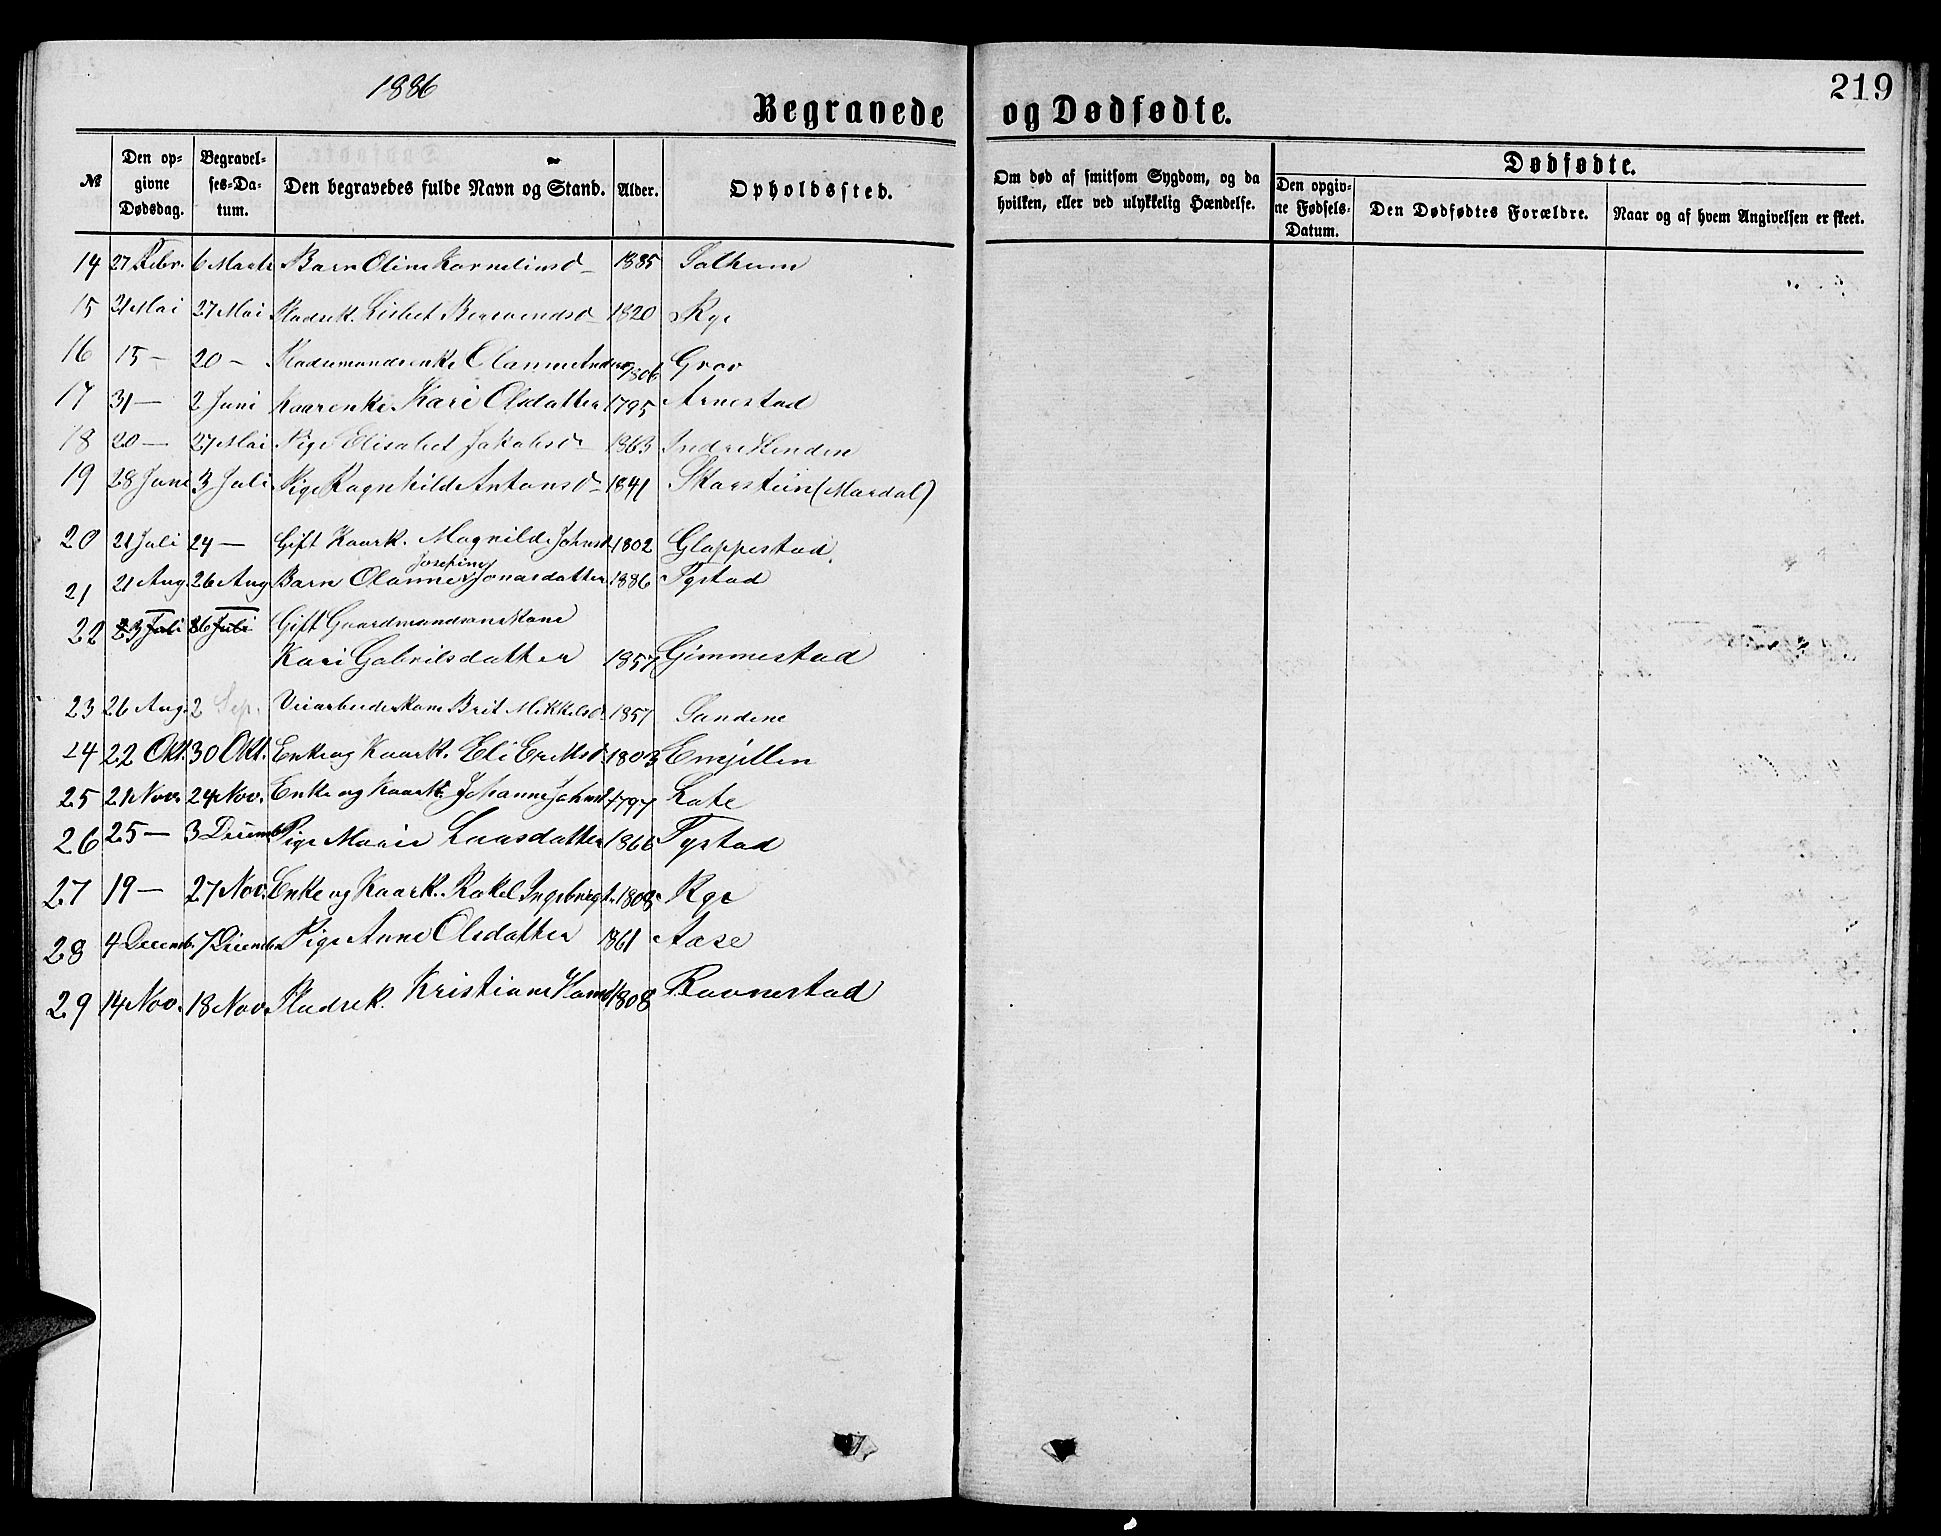 1886
219
Begravede og Dødfødte.
№ Den opgivne Dødsdag. Begravelses-Datum. Den begravedes fulde Navn og Stand. Alder. Opholdssted. Om død af smitsom Sygdom, og da hvilken, eller ved ulykkelig Hændelse. Dødfødte. Den opgivne Fødsels-Datum. Den Dødfødtes Forældre. Naar og af hvem Angivelsen er skeet.
14 27 Febr. 6 Marts Barn Oline Korneliusd 1885 Solheim
15 21 Mai 27 Mai Pladsk. Lisbet 1820 Rye
16 15 — 20 — Pladsmandsenke Olianne Anders 1806 Grov
17 31 — 2 Juni Kaarenke Kari Olsdatter 1795 Arnestad
18 20 — 27 Mai Pige Elisabet Jakobsd 1863 Indre Henden
19 28 Juni 3 Juli Pige Ragnhilde Antonsd 1841 Skarstein (Mardal)
20 21 Juli 24 — Gift Kaark. Magnilde Johnsd. 1802 Gloppestad.
Josefine
21 21 Aug 26 Aug Barn Olianne Jonasdatter 1886 Tystad
22 23 Juli 26 Juli Gift Gaardmandsøns Kone
Kari Gabrielsdatter 1857 Gimmestad
23 26 Aug. 2 Sep. Veiarbeiderkone Brit Mikkelsd. 1857 Sandene
24 22 Okt. 30 Okt. Enke og Kaark. Eli Eriksd. 1803 Emjellen
25 21 Nov. 24 Nov. Enke og Kaark. Johanne Johnsd. 1797 Lote
26 25 — 3 Decemb. Pige Marie Laasdatter 1866 Tystad
27 19 — 27 Nov. Enke og Kaark. Rakel Ingebregt. 1808 Rye
28 4 Decemb. 7 Decemb. Pige Anne Olsdatter 1861 Aase
29 14 Nov. 18 Nov. Pladsek. Kristiane Hansd. 1808 Ravnestad